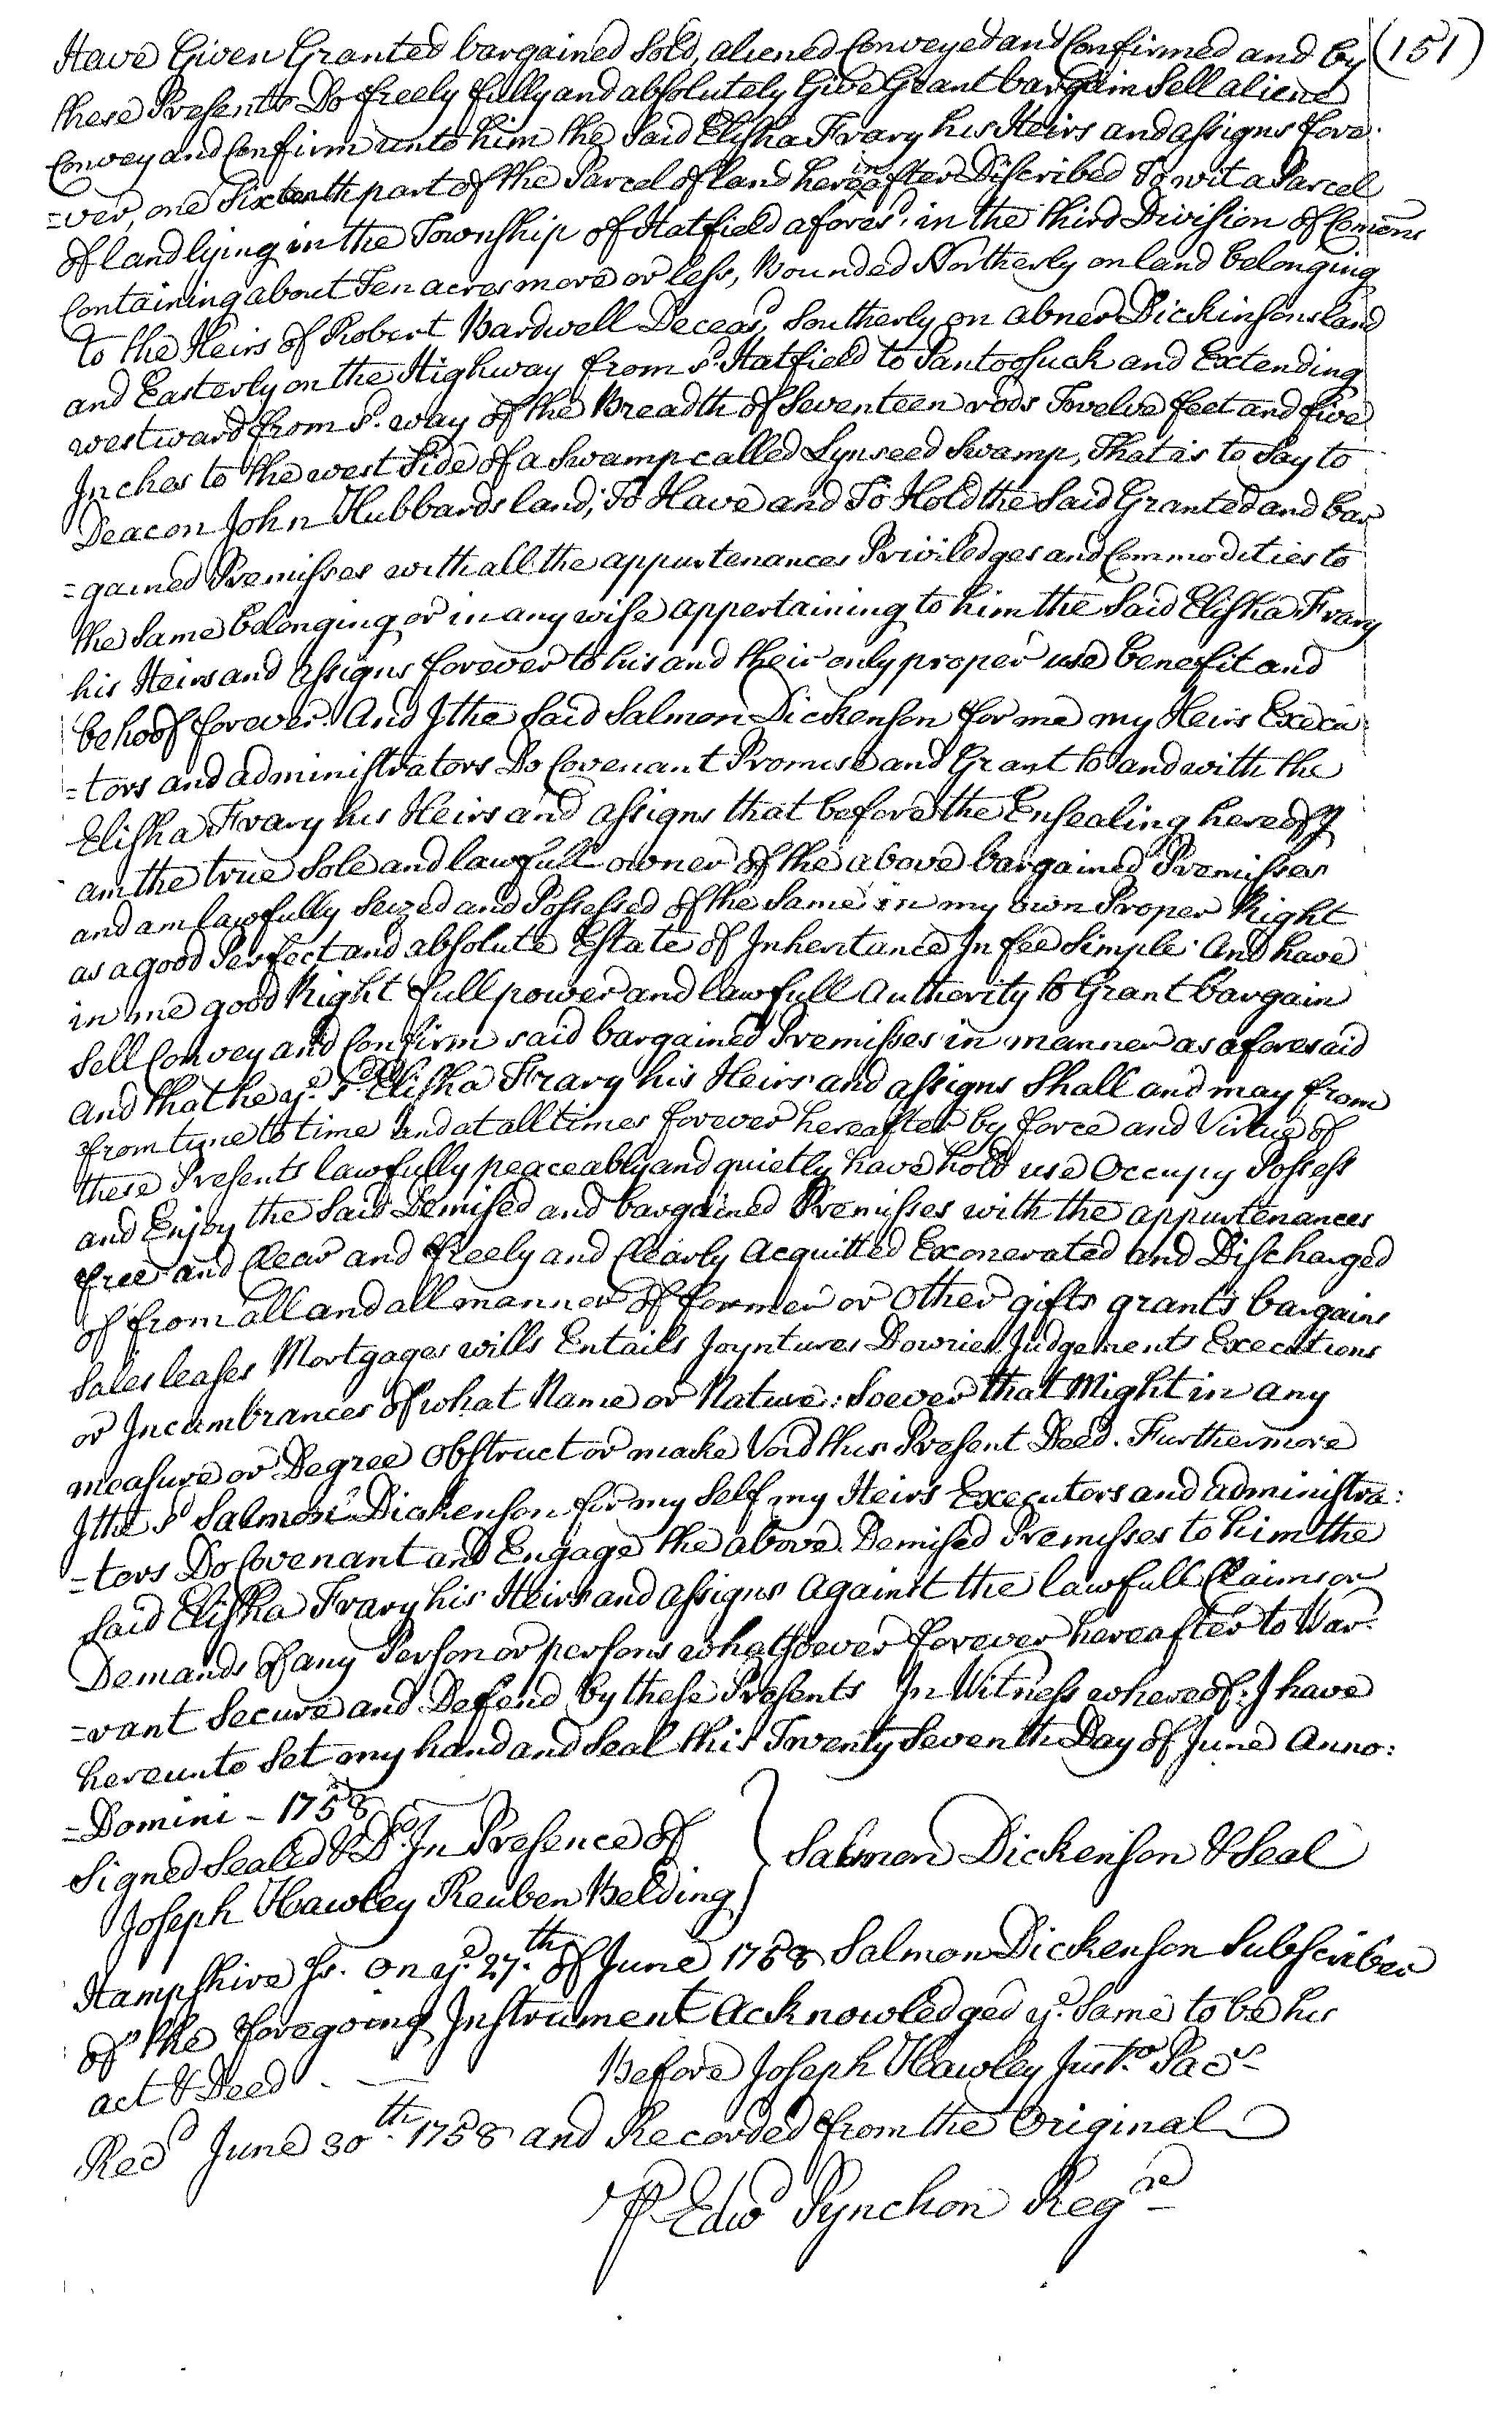 Have Given Granted bargained Sold, aliened Conveyed and Confirmed and by (151)
these Presents Do freely fully and absolutely Give Grant bargain Sell aliene
Convey and Confirm unto him the Said Elisha Frary his Heirs and assigns fore
=ver, one Sixteenth part of the Parcel of land hereinafter Discribed To wit a Parcel
of land lying in the Township of Hatfield afores.d in the third Division of Comons
Containing about Ten acres more or less, Bounded Northerly on land belonging
to the Heirs of Robert Bardwell Deceasd, Southerly on abner Dickinsons land
and Easterly on the Highway from sd. Hatfield to Pantoosuck and Extending
westward from sd. way of the Breadth of Seventeen rods Twelve feet and five
Inches to the west Side of a Swamp called Lynseed Swamp, That is to Say to
Deacon John Hubbards land; To Have and To Hold the Said Granted and bar
=gained Premisses with all the appurtenances Priviledges and Commodities to
the Same belonging or in any wise appertaining to him the Said Elisha Frary
his Heirs and assigns forever to his and their only proper use benefit and
behoof forever. And I the Said Salmon Dickenson for me my Heirs Execu
=tors and administrators Do Covenant Promise and Grant to and with the
Elisha Frary his Heirs and assigns that before the Ensealing hereof I
am the true Sole and lawfull owner of the above bargained Premisses
and am lawfully Seized and Possessed of the Same in my own Proper Right
as a good Perfect and absolute Estate of Inheritance In fee Simple And have
in me good Right full power and lawfull Authority to Grant bargain
Sell Convey and Confirm said bargained Premisses in manner as aforesaid
And that he ye. sd. Elisha Frary his Heirs and assigns Shall and may from
from time to time and at all times forever hereafter by force and Virtue of
these Presents lawfully peaceably and quietly have hold use Occupy Possess
and Enjoy the Said Demised and bargained Premisses with the appurtenances
free and Clear and freely and Clearly Acquitted Exonerated and Discharged
of from all and all manner of former or Other gifts grants bargains
Sales leases Mortgages wills Entails Joyntures Dowries Judgements Executions
or Incumbrances of what Name or Nature: Soever that Might in any
measure or Degree Obstruct or make Void this Present Deed. Furthermore
I the sd Salmon Dickenson for my Self my Heirs Executors and administra:
=tors Do Covenant and Engage the above Demised Premisses to him the
Said Elisha Frary his Heirs and assigns against the lawfull Claims or
Demands of any Person or persons whatsoever forever hereafter to War
=rant Secure and Defend by these Presents In Witness whereof: I have
hereunto Set my hand and Seal this Twenty Seventh Day of June Anno:
=Domini - 1758
Signed Sealed & Dd. In Presence of
Joseph Hawley Reuben Belding } Salmon Dickenson & Seal
Hampshire ss. On ye. 27.th of June 1758 Salmon Dickenson Subscriber
of the foregoing Instrument Acknowledged ye. Same to be his
act & Deed - Before Joseph Hawley Justo. Pacs
Recd June 30th. 1758 and Recorded from the Original
P Edwd Pynchon Regre